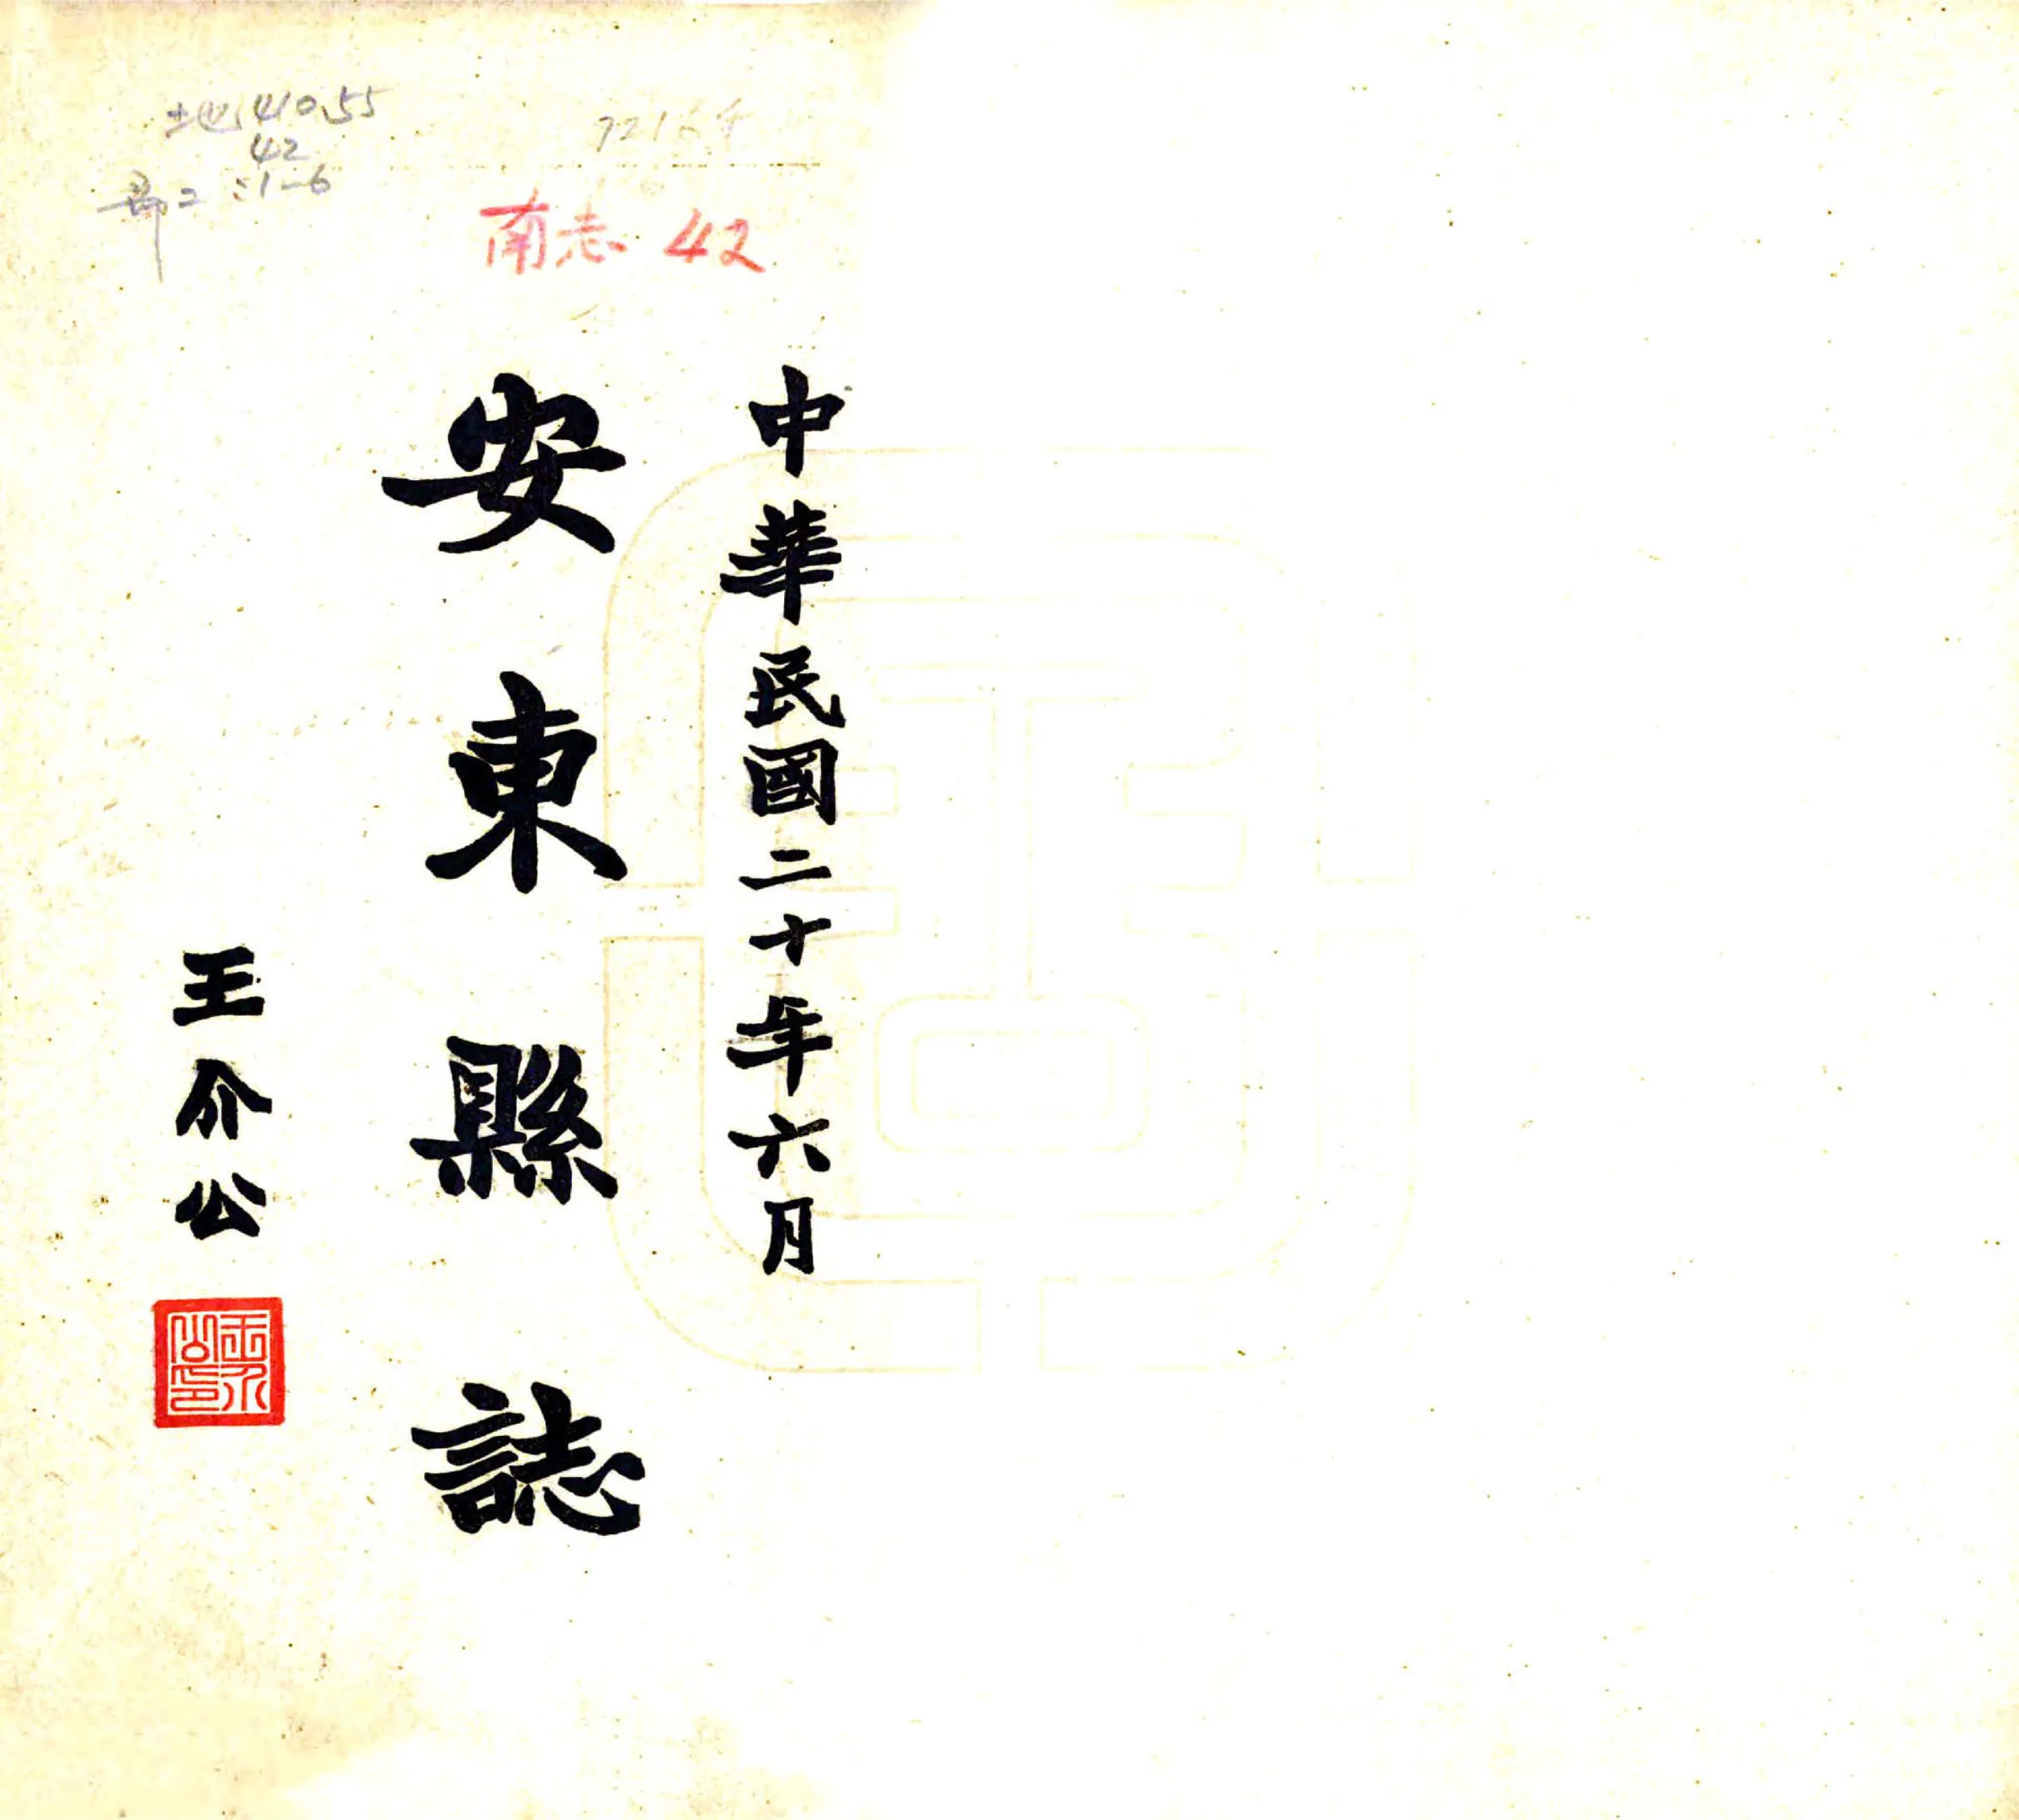 中華民國二十年六月
安東縣誌
王介公
王介公印
地410.55
42
:1-6
南志 42